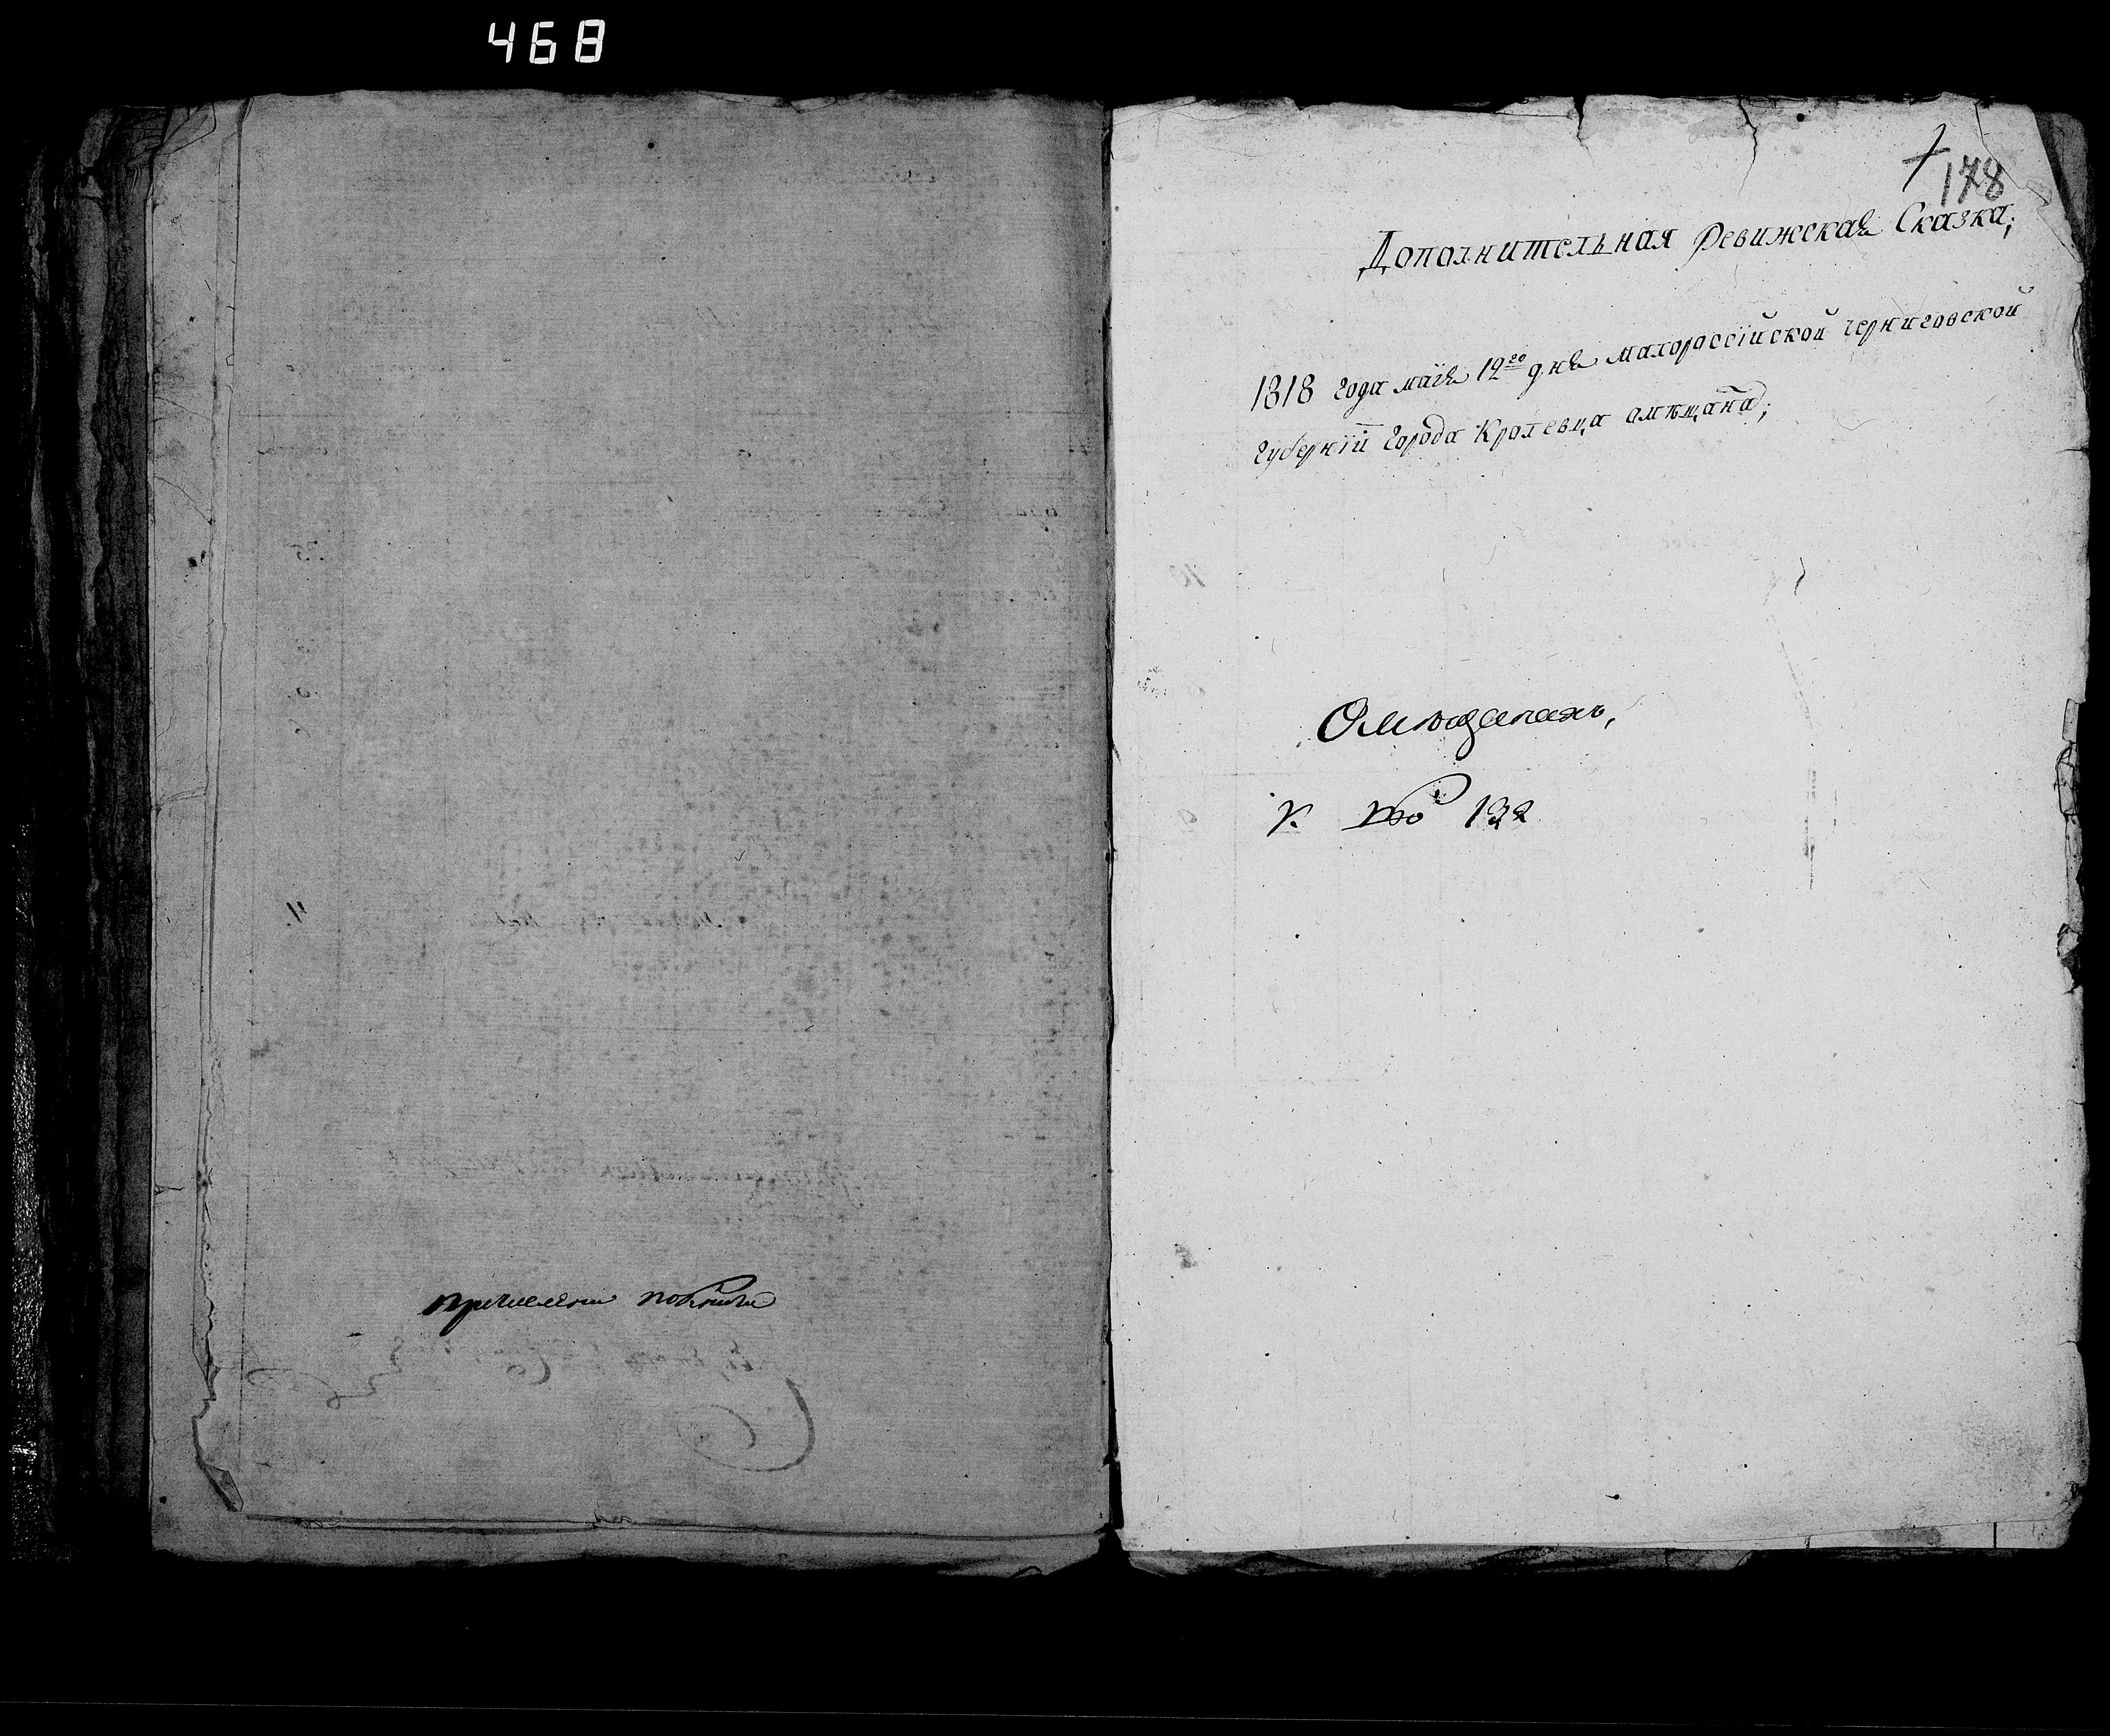 468
178
Дополнительная Ревижская Сказка;
1818 года маiя 12го дня малороссiйской черниговской
губернiи города Кролевца омѣщана;
Омѣщанахъ,
132